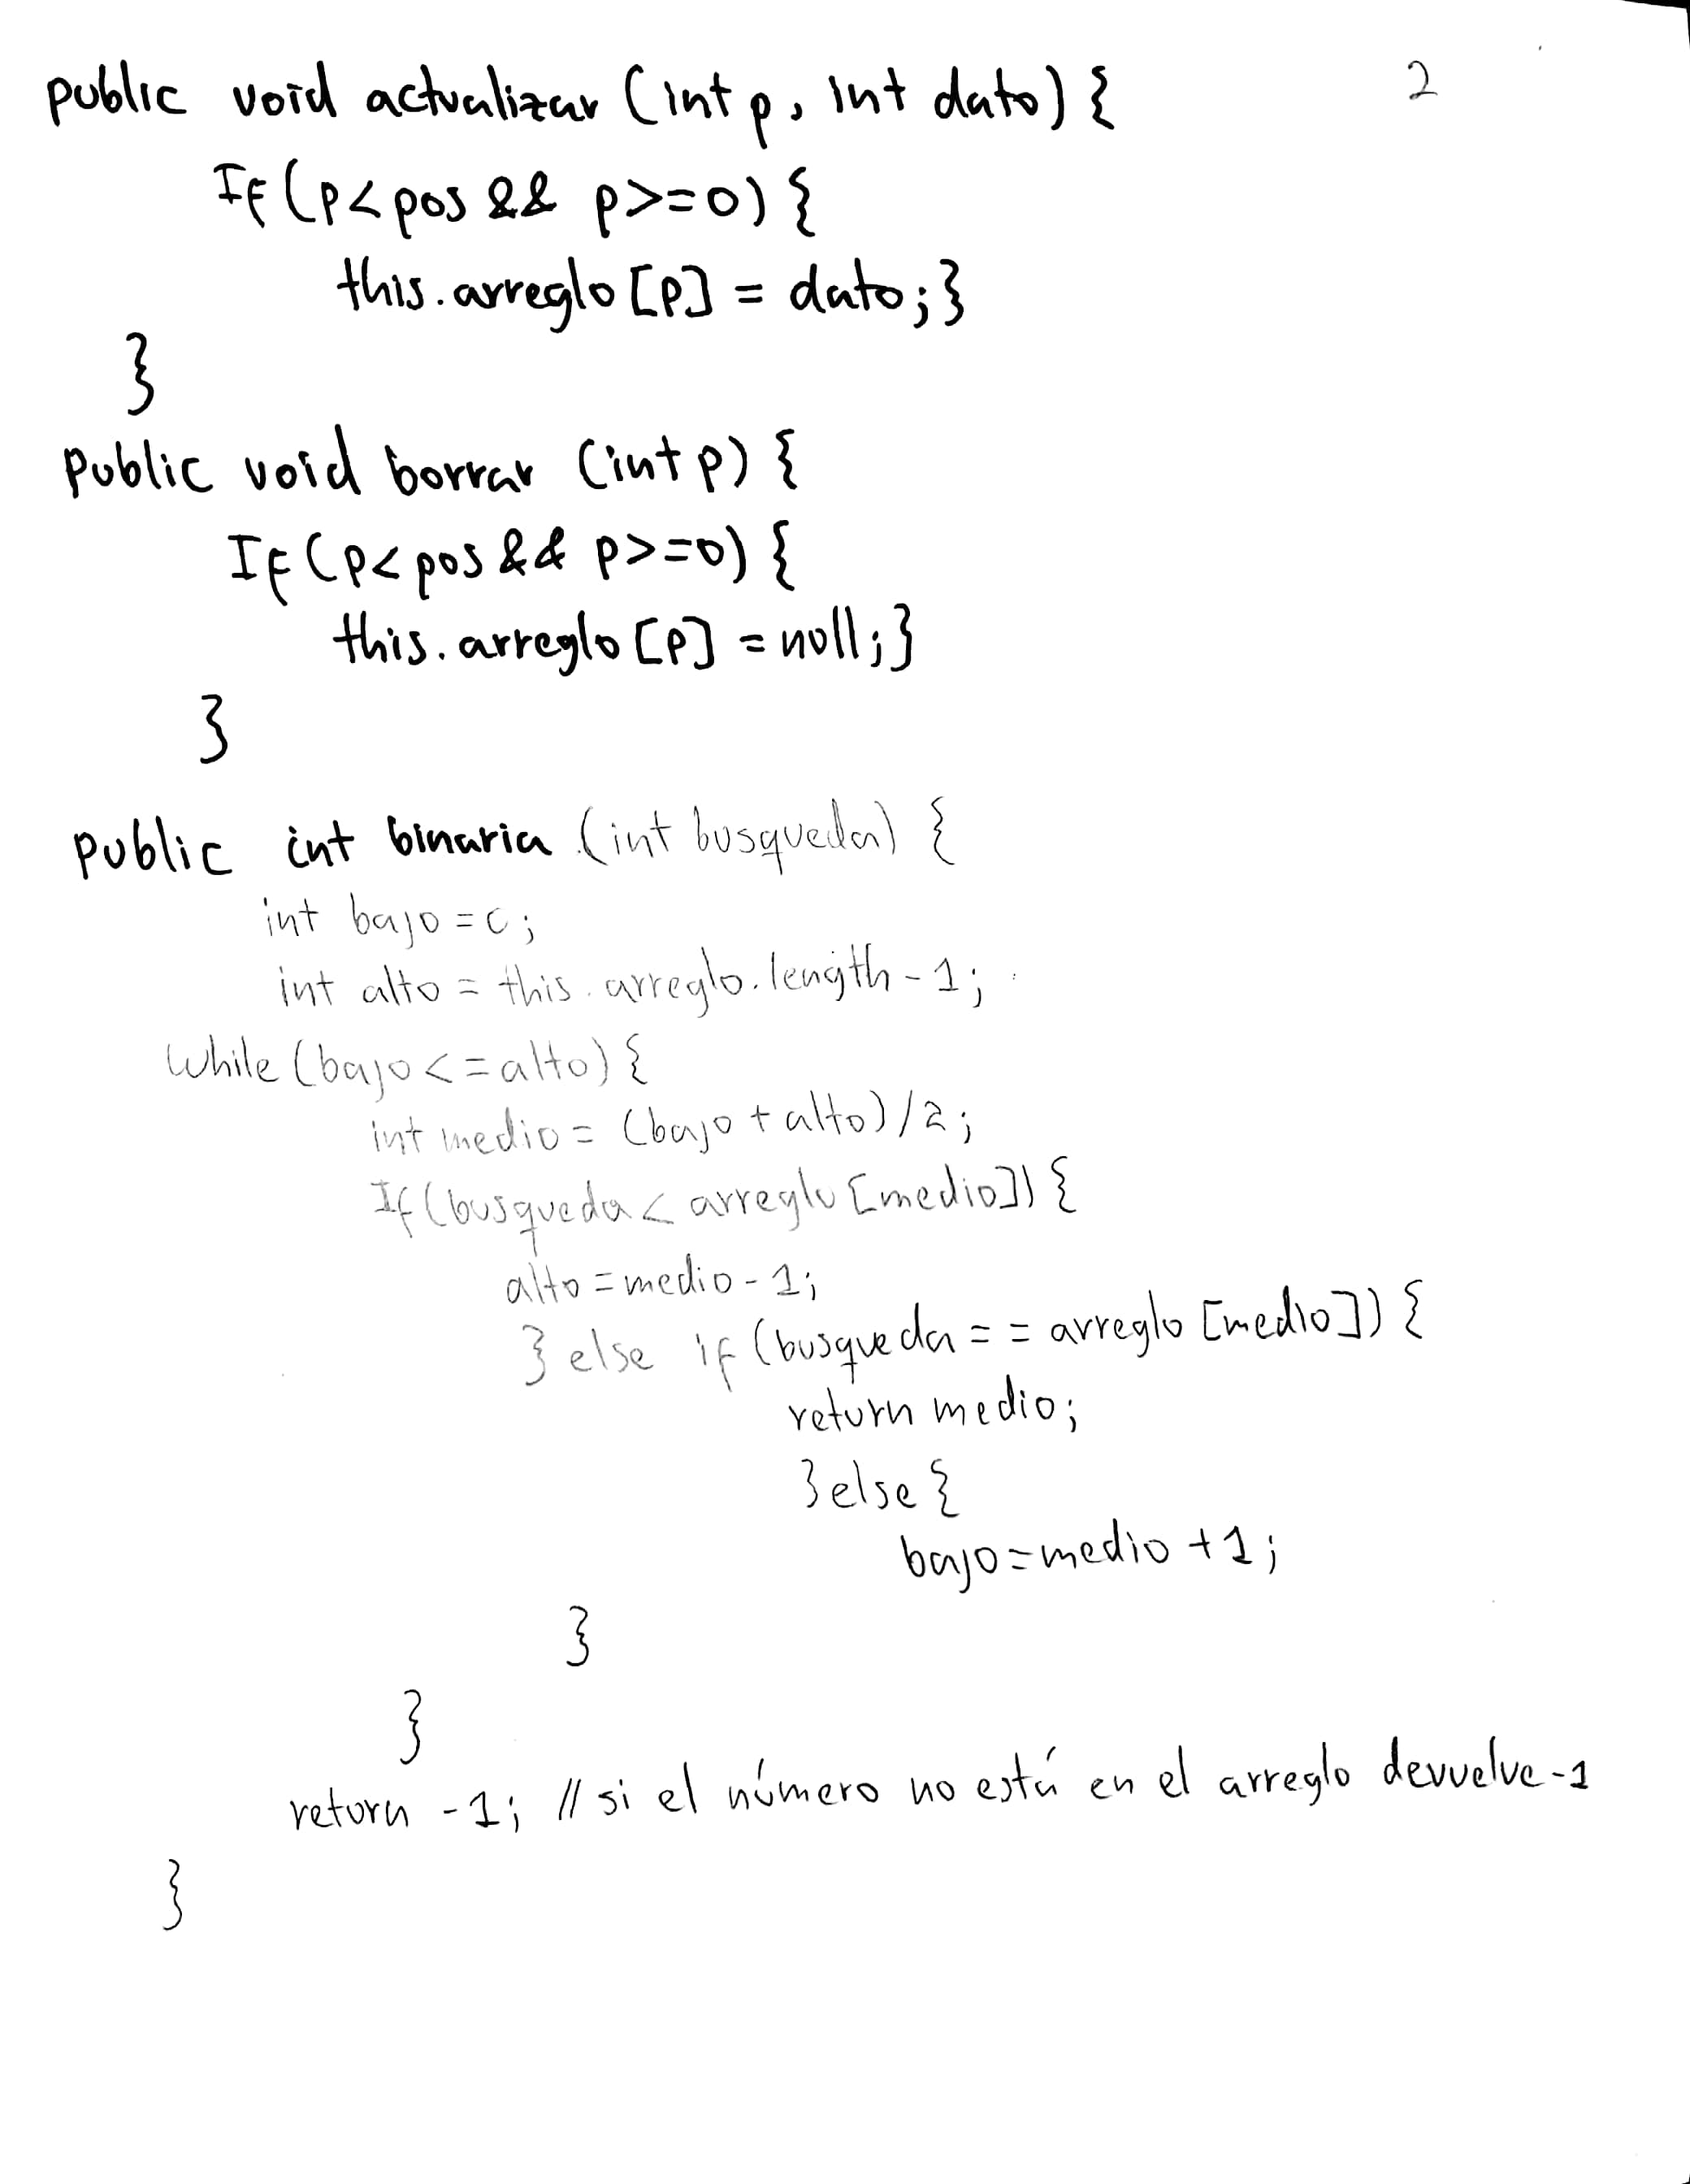 public void actualizar (int p, int dato) { 2
If (p<pos && p>=0) {
this.arreglo [p] = dato;}
}
public void borrar (int p) {
If (p<pos && p>=0) {
this.arreglo [p] = null;}
}
public int binaria (int busqueda) {
int bajo = 0;
int alto = this.arreglo.length - 1;
While (bajo <= alto) {
int medio = (bajo + alto) / 2;
If (busqueda < arreglo [medio]) {
alto = medio - 1;
} else if (busqueda == arreglo [medio]) {
return medio;
} else {
bajo = medio + 1;
}
}
return -1; // si el número no está en el arreglo devuelve -1
}